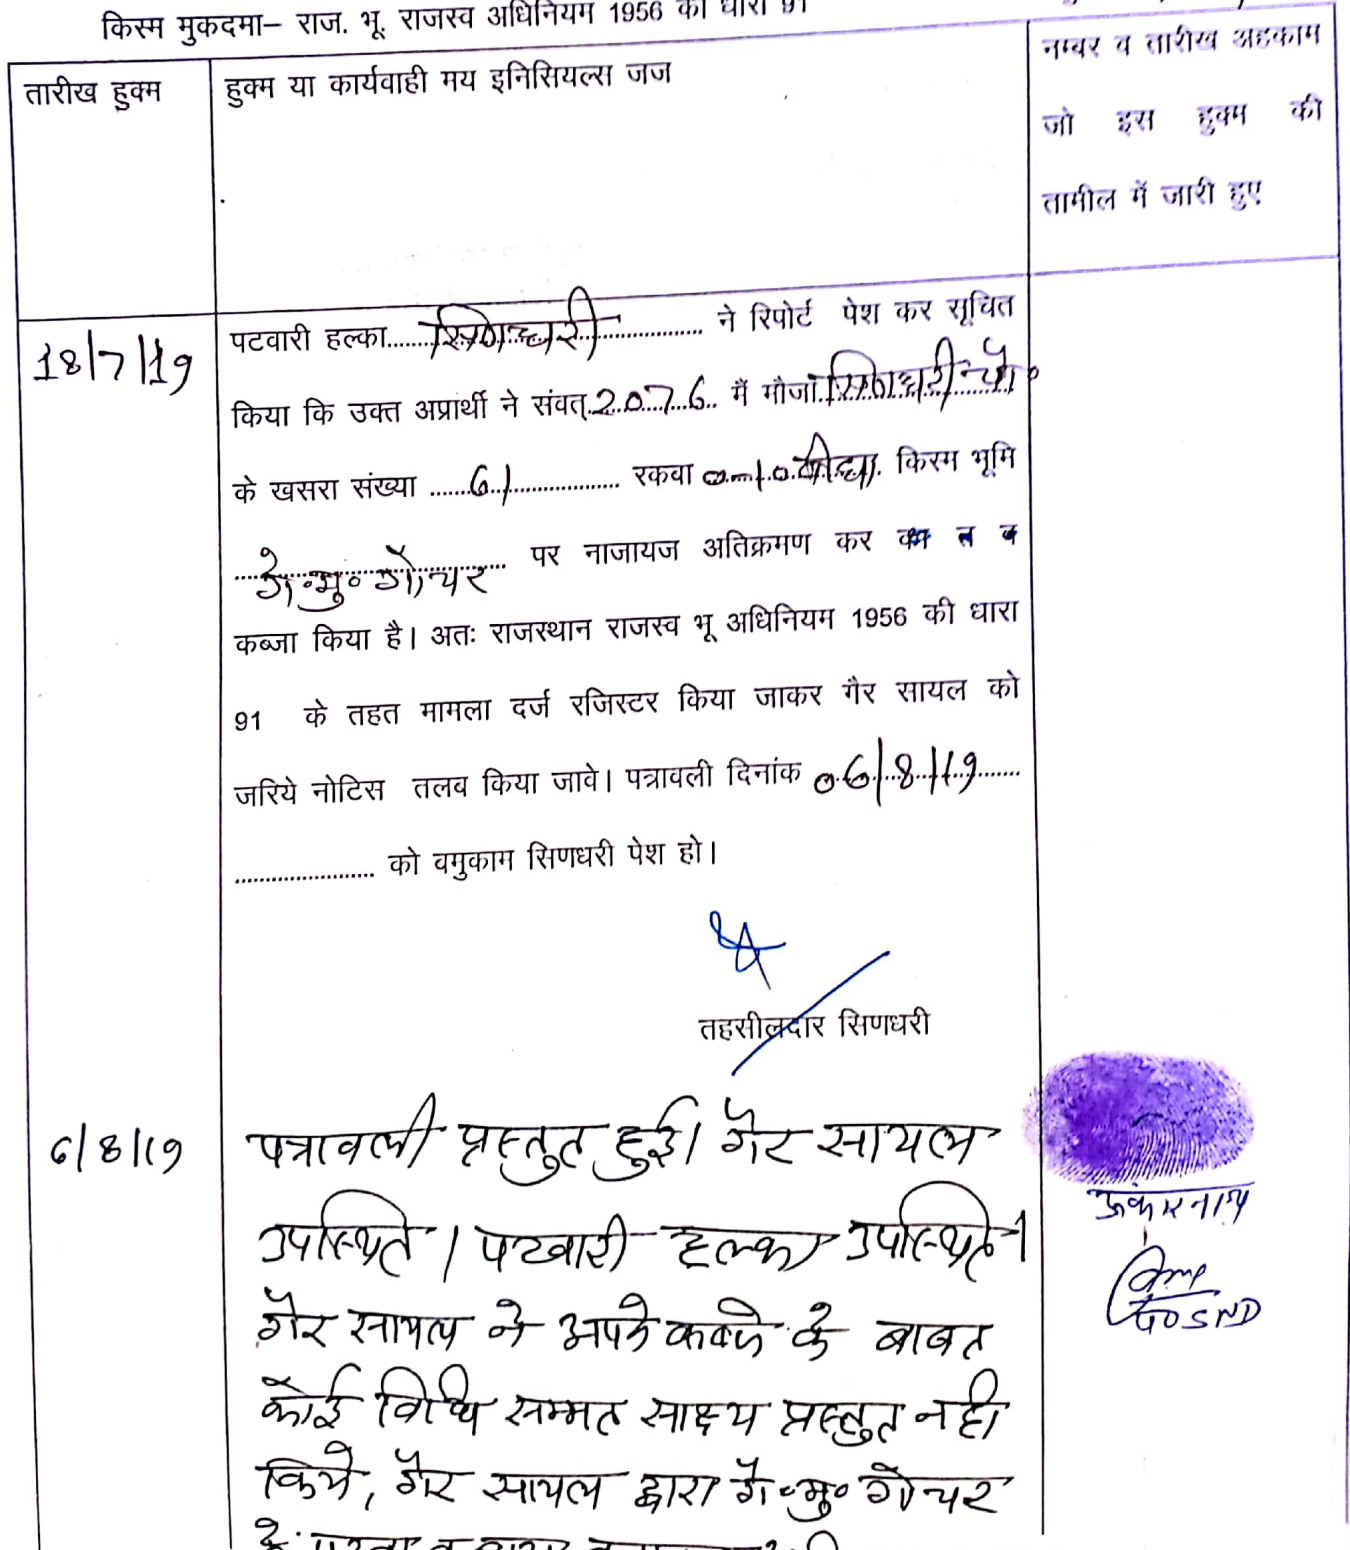 किस्म मुकदमा– राज. भू. राजस्व अधिनियम 1956 की धारा 91
तारीख हुक्म
हुक्म या कार्यवाही मय इनिसियल्स जज
नम्बर व तारीख अहकाम
जो इस हुक्म की
तामील में जारी हुए
18/7/19
पटवारी हल्का......सिणधरी............... ने रिपोर्ट पेश कर सूचित
किया कि उक्त अप्रार्थी ने संवत् 2076 में मौजा सिणधरी चौ०
के खसरा संख्या ......61............... रकवा 0-10 बीघा. किस्म भूमि
गै॰मु॰ गोचर पर नाजायज अतिक्रमण कर
कब्जा किया है। अतः राजस्थान राजस्व भू अधिनियम 1956 की धारा
91 के तहत मामला दर्ज रजिस्टर किया जाकर गैर सायल को
जरिये नोटिस तलब किया जावे। पत्रावली दिनांक 06/8/19
...................... को वमुकाम सिणधरी पेश हो।
तहसीलदार सिणधरी
6/8/19
पत्रावली प्रस्तुत हुई। गैर सायल
उपस्थित। पटवारी हल्का उपस्थित।
गैर सायल ने अपने कब्जे के बाबत
कोई विधि सम्मत साक्ष्य प्रस्तुत नही
किये, गैर सायल द्वारा गै॰मु॰ गोचर